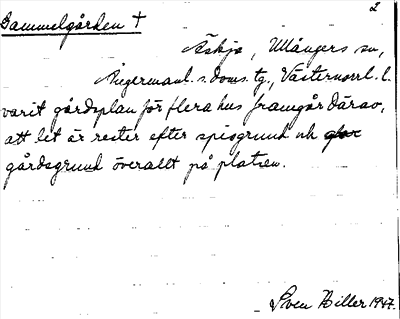 2
Gammelgården †
Äskja, Ullångers sn,
Ångermanl. s. doms. tg., Västernorrl. l.
varit gårdsplan för flera hus framgår därav,
att det är rester efter spisgrund och
gårdsgrund överallt på platsen.
Sven Biller 1947.